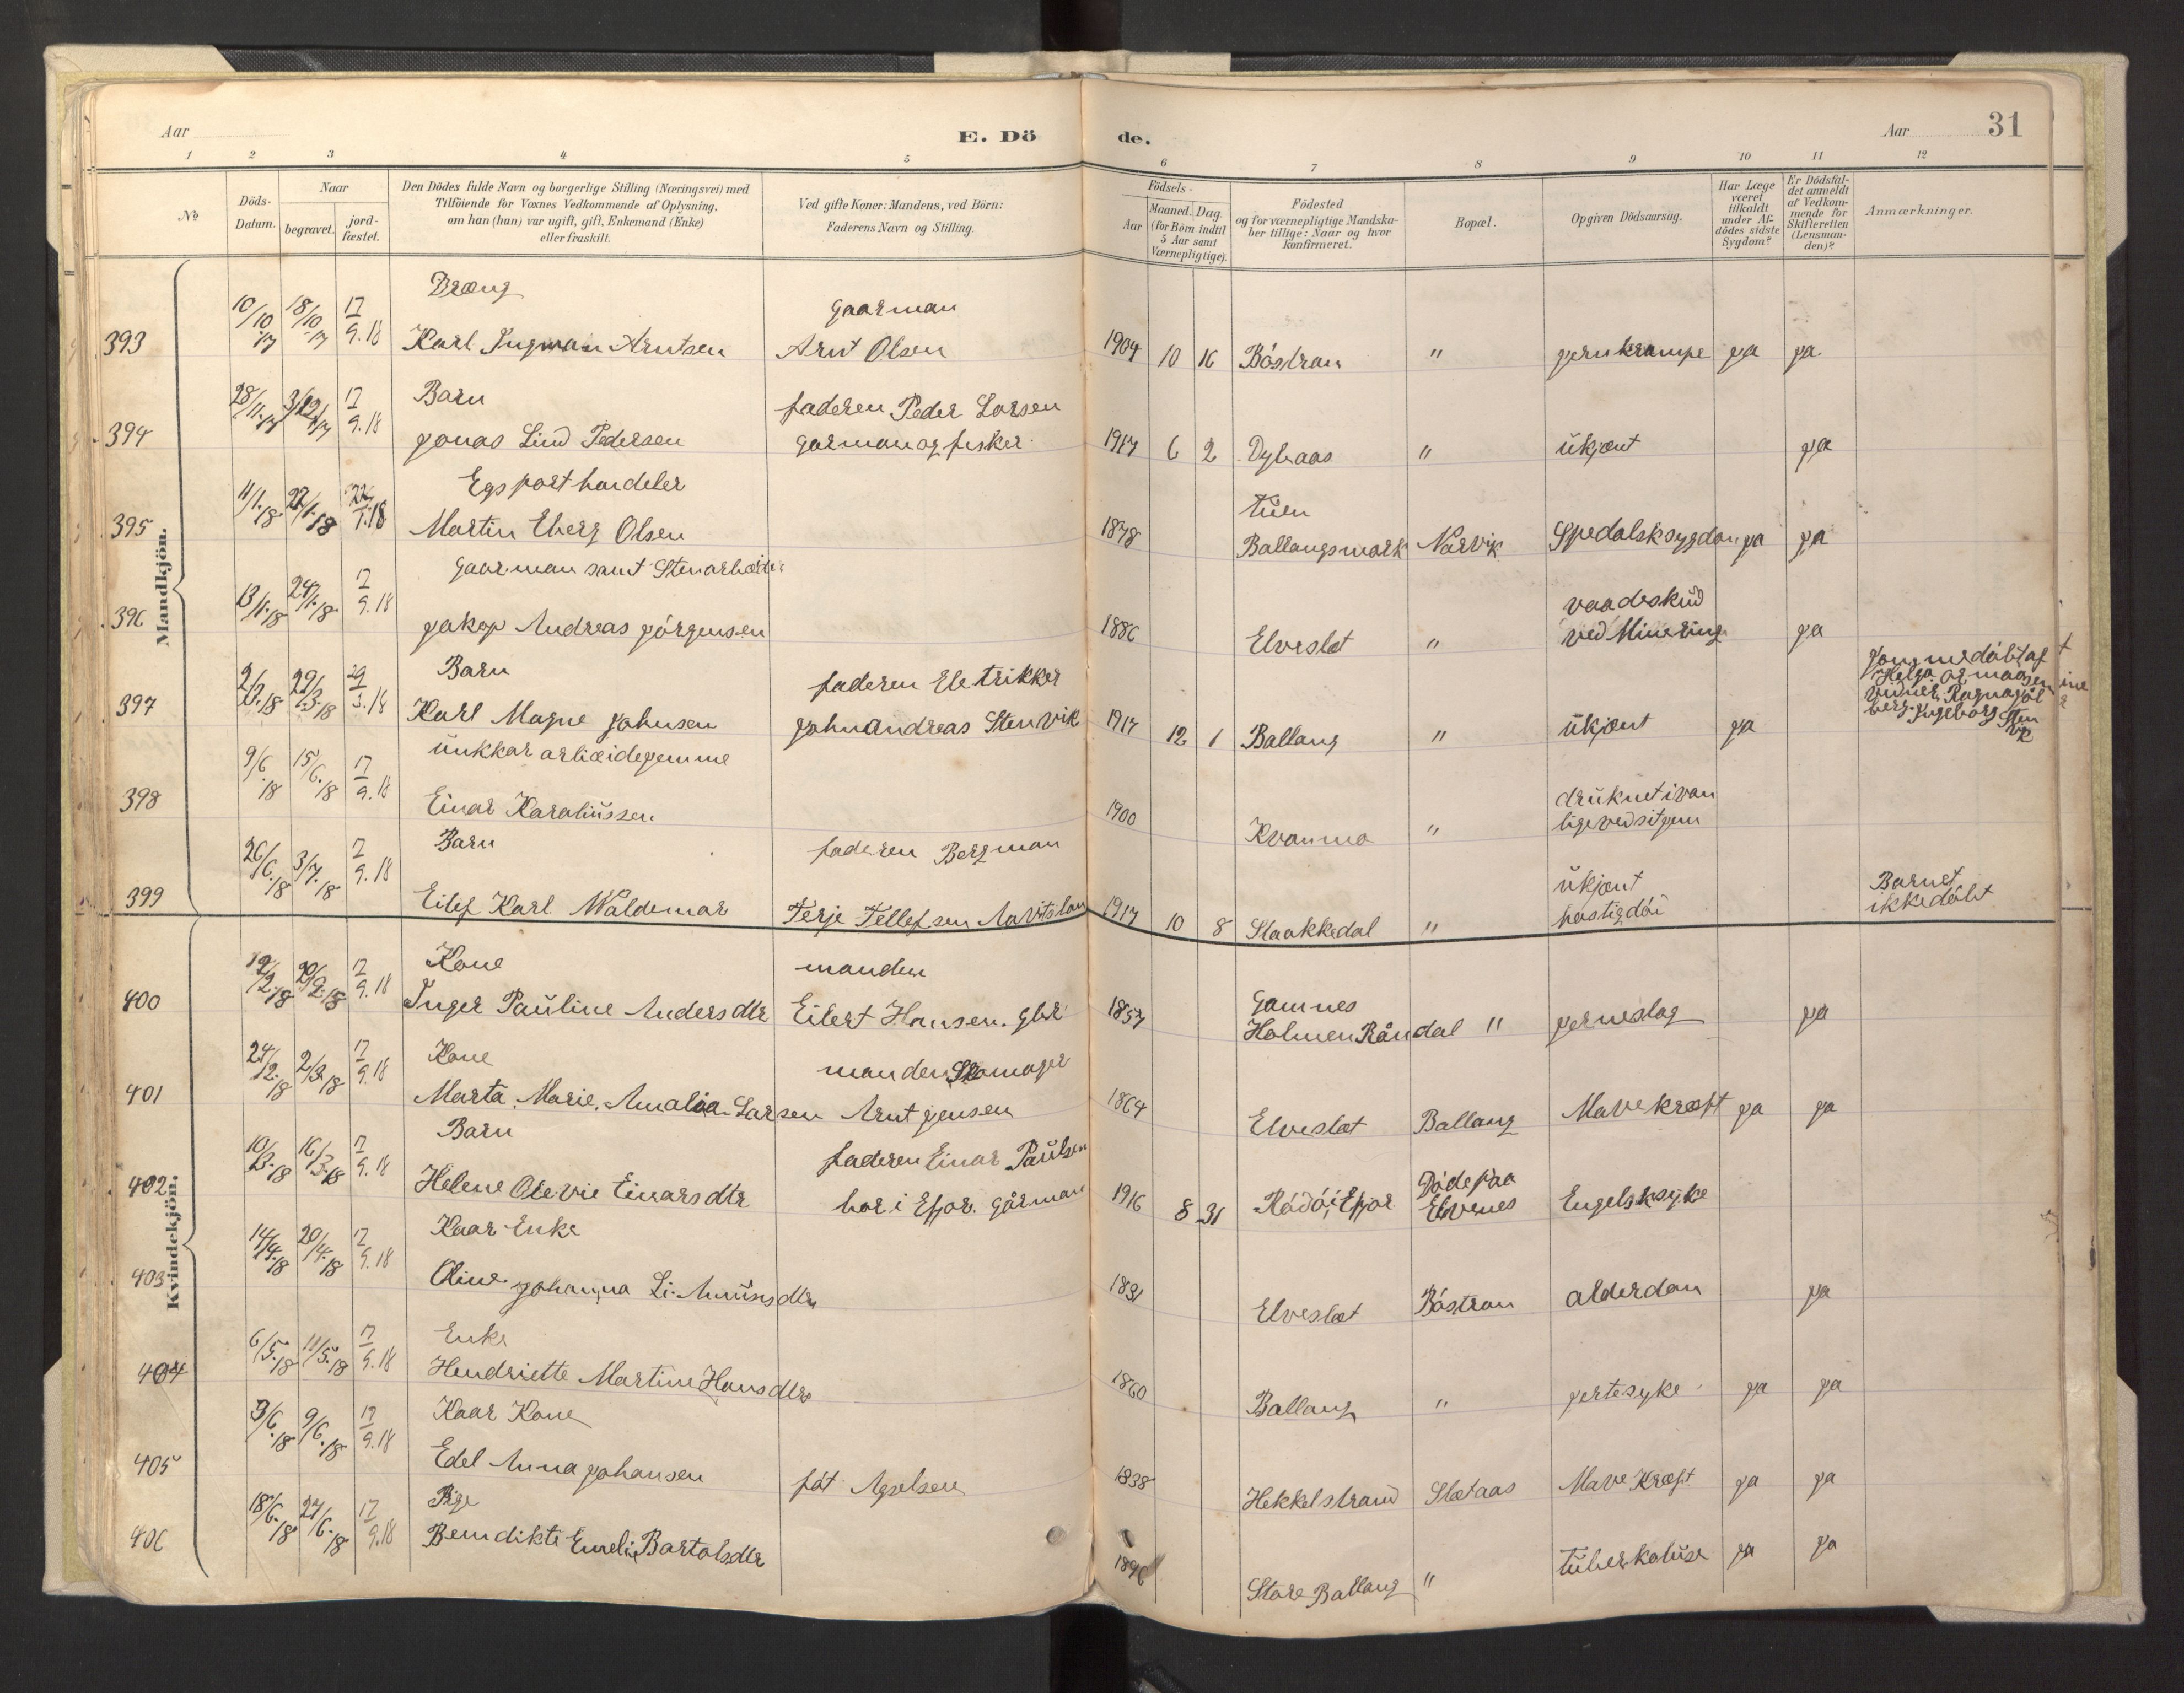 Aar
E. Dö
de.
Aar
31
1 2 3 4 5 6 7 8 9 10 11 12
No
Döds-Datum.
Naar
begravet.
jord-fæstet.
Den Dödes fulde Navn og borgerlige Stilling (Næringsvei) med
Tilföiende for Voxnes Vedkommende af Oplysning,
om han (hun) var ugift, gift, Enkemand (Enke)
eller fraskilt.
Ved gifte Koner: Mandens, ved Börn:
Faderens Navn og Stilling.
Födsels-
Aar
Maaned. Dag.
(for Börn indtil
5 Aar samt
Værnepligtige).
Födested
og for værnepligtige Mandska-
ber tillige: Naar og hvor
Konfirmeret.
Bopæl.
Opgiven Dödsaarsag.
Har Læge
været
tilkaldt
under Af-
dödes sidste
Sygdom?
Er Dödsfal-
det anmeldt
af Vedkom-
mende for
Skifteretten
(Lensman-
den)?
Anmærkninger.
Mandkjön.
Dræng gaarman
393 10/10-17 18/10-17 17/9.18 Karl Ingman Arntsen Arnt Olsen 1904 10 16 Bóstran " jernkrampe ja ja
Barn faderen Peder Larsen
394 28/11-17 3/12-17 17/9.18 jonas Lind Pedersen garman og fisker 1917 6 2 Dybaas " ükjent ja
Egsporthandeler Tüen
395 11/1.18 22/1.18 22/1.18 Martin Eberg Olsen 1878 Ballangsmark Narvik Spedalsksygdom ja ja
gaarman samt Stenarbæider vaadeskud
396 13/1.18 24/1.18 17/9.18 jakop Andreas jórgensen 1886 Elveslet " ved Minering ja
Barn faderen Eletrikker
397 2/3.18 29/3.18 29/3.18 Karl Magne johnsen john andreas Stenvik 1917 12 1 Ballang " ükjent ja
jomedóbt af
Helga
vidner. Ragna
berg. Ingeborg Sten
vik
ünkkar arbæidegemme drüknet i van
398 9/6.18 15/6.18 17/9.18 Einar Karoliüssen 1900 Kvanmo " lige ved sit jem
Barn faderen Bergman ükjent Barnet
399 26/6.18 3/7.18 17/9.18 Eilef Karl Waldemar Terje Tellefsen Navitslan 1917 10 8 Staakkedal " hastig dód ikkedóbt
Kvindekjön.
Kone manden Gamnes
400 12/2.18 20/2.18 17/9.18 Inger Paüline Andersdtr Eilert Hansen. gbr 1857 Holmen Råndal " jerneslag ja
Kone manden Skomager
401 24/2.18 2/3.18 17/9.18 Marta. Marie. Amalia Larsen Arnt jensen 1864 Elveslet Ballang Mavekræft ja ja
Barn faderen Einar Paülsen Dóde paa
402 10/3.18 16/3.18 17/9.18 Helene Olevie Einarsdtr bor i Efjor. gårman 1916 8 31 Ródói Efjor Elvenes Engelsksyke
Kaar Enke
403 14/4.18 20/4.18 17/9.18 Oline johanna Li. Amünsdtr 1831 Elveslet Bóstran alderdom ja
Enke
404 6/5.18 11/5.18 17/9.18 Hendriette Martine Hansdtr 1860 Ballang " jertesyke ja ja
Kaar Kone
405 3/6.18 9/6.18 17/9.18 Edel Anna johansen fót Agselsen 1838 Hekkelstrand Sletaas Mave Kræft ja ja
Pige
406 18/6.18 27/6.18 17/9.18 Bendikte Emelie Bartolsdtr 1896 Store Ballang " tüberkoluse ja ja